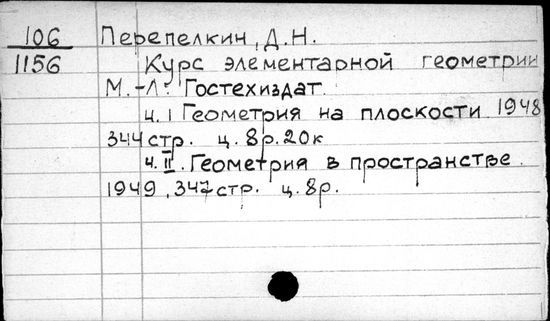 106 Перепелкин, Д.Н.
1156 Курс элементарной геометрии
М.-Л. Гостехиздат.
ч. I Геометрия на плоскости 1948
344 стр. ц. 8р. 20к
ч. II. Геометрия в пространстве.
1949, 347 стр. ц. 8р.